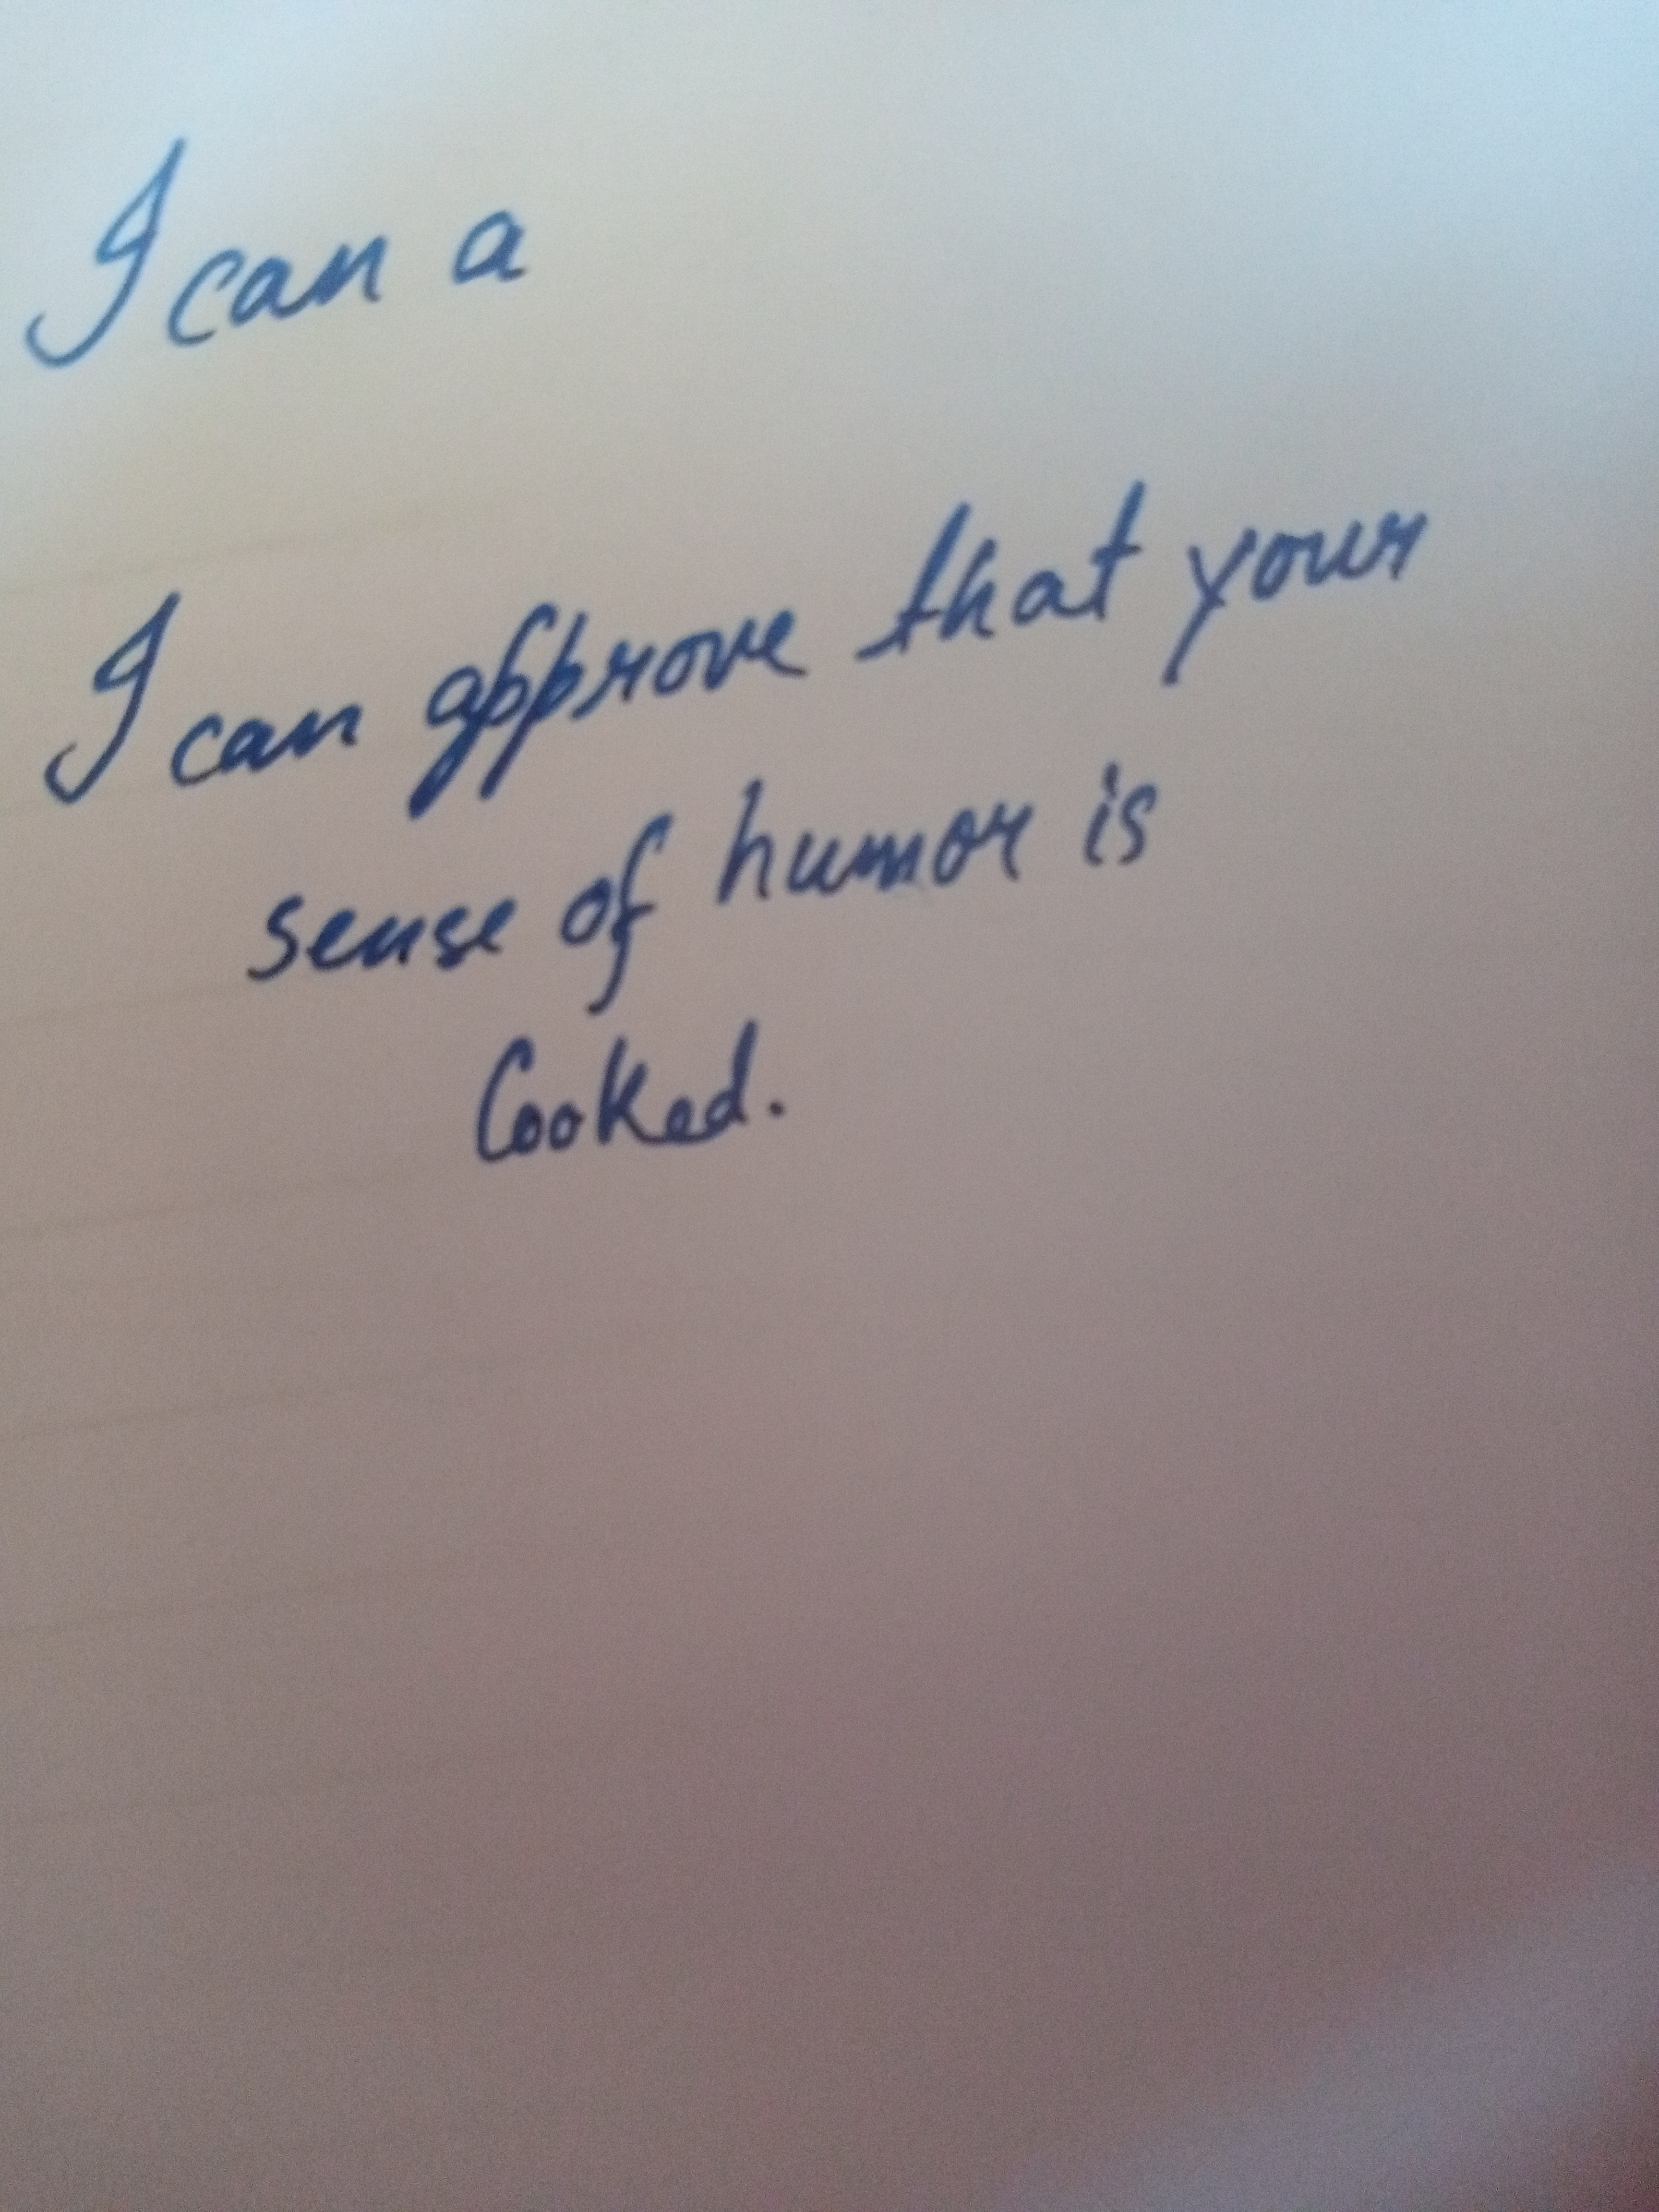 I can a
I can approve that your
sense of humor is
Cooked.